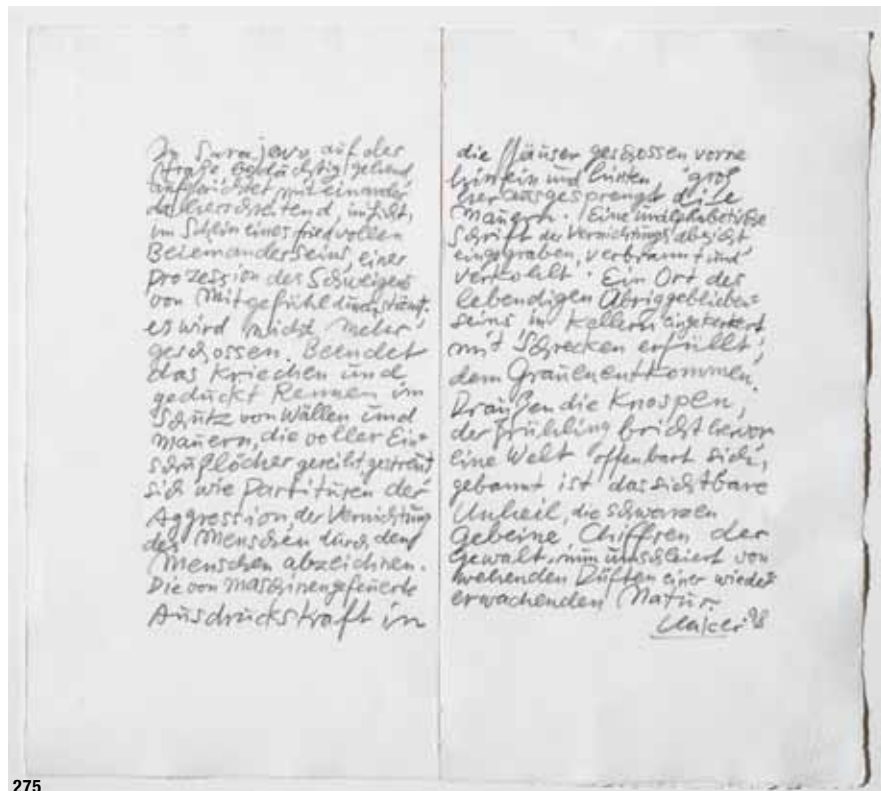 In Sarajevo auf der
Straße, bedächtig gehend
aufgerichtet miteinander
daherschreitend, im Licht,
im Schein eines friedvollen
Beieinanderseins, einer
Prozession des Schweigens
von Mitgefühl durchströmt.
es wird nicht mehr
geschossen. Beendet
das Kriechen und
geduckt Rennen im
Schutz von Wällen und
Mauern, die voller Ein=
schußlöcher gereiht gestreut
sich wie Partituren der
Aggression, der Vernichtung
des Menschen durch den
Menschen abzeichnen.
Die von Maschinen gefeuerte
Ausdruckskraft in
die Häuser geschossen vorne
hinein und hinten groß
herausgesprengt die
Mauern. Eine unalphabetische
Schrift der Vernichtungsabsicht
eingegraben, verbrannt und
verkohlt. Ein Ort des
lebendigen Übriggeblieben=
seins in Kellern eingekerkert
mit Schrecken erfüllt,
dem Grauen entkommen.
Draußen die Knospen,
der Frühling bricht hervor
eine Welt offenbart sich,
gebannt ist das sichtbare
Unheil, die schwarzen
Gebeine, Chiffren der
Gewalt, nun umschleiert von
wehenden Düften einer wieder
erwachenden Natur.
Uecker 98
275